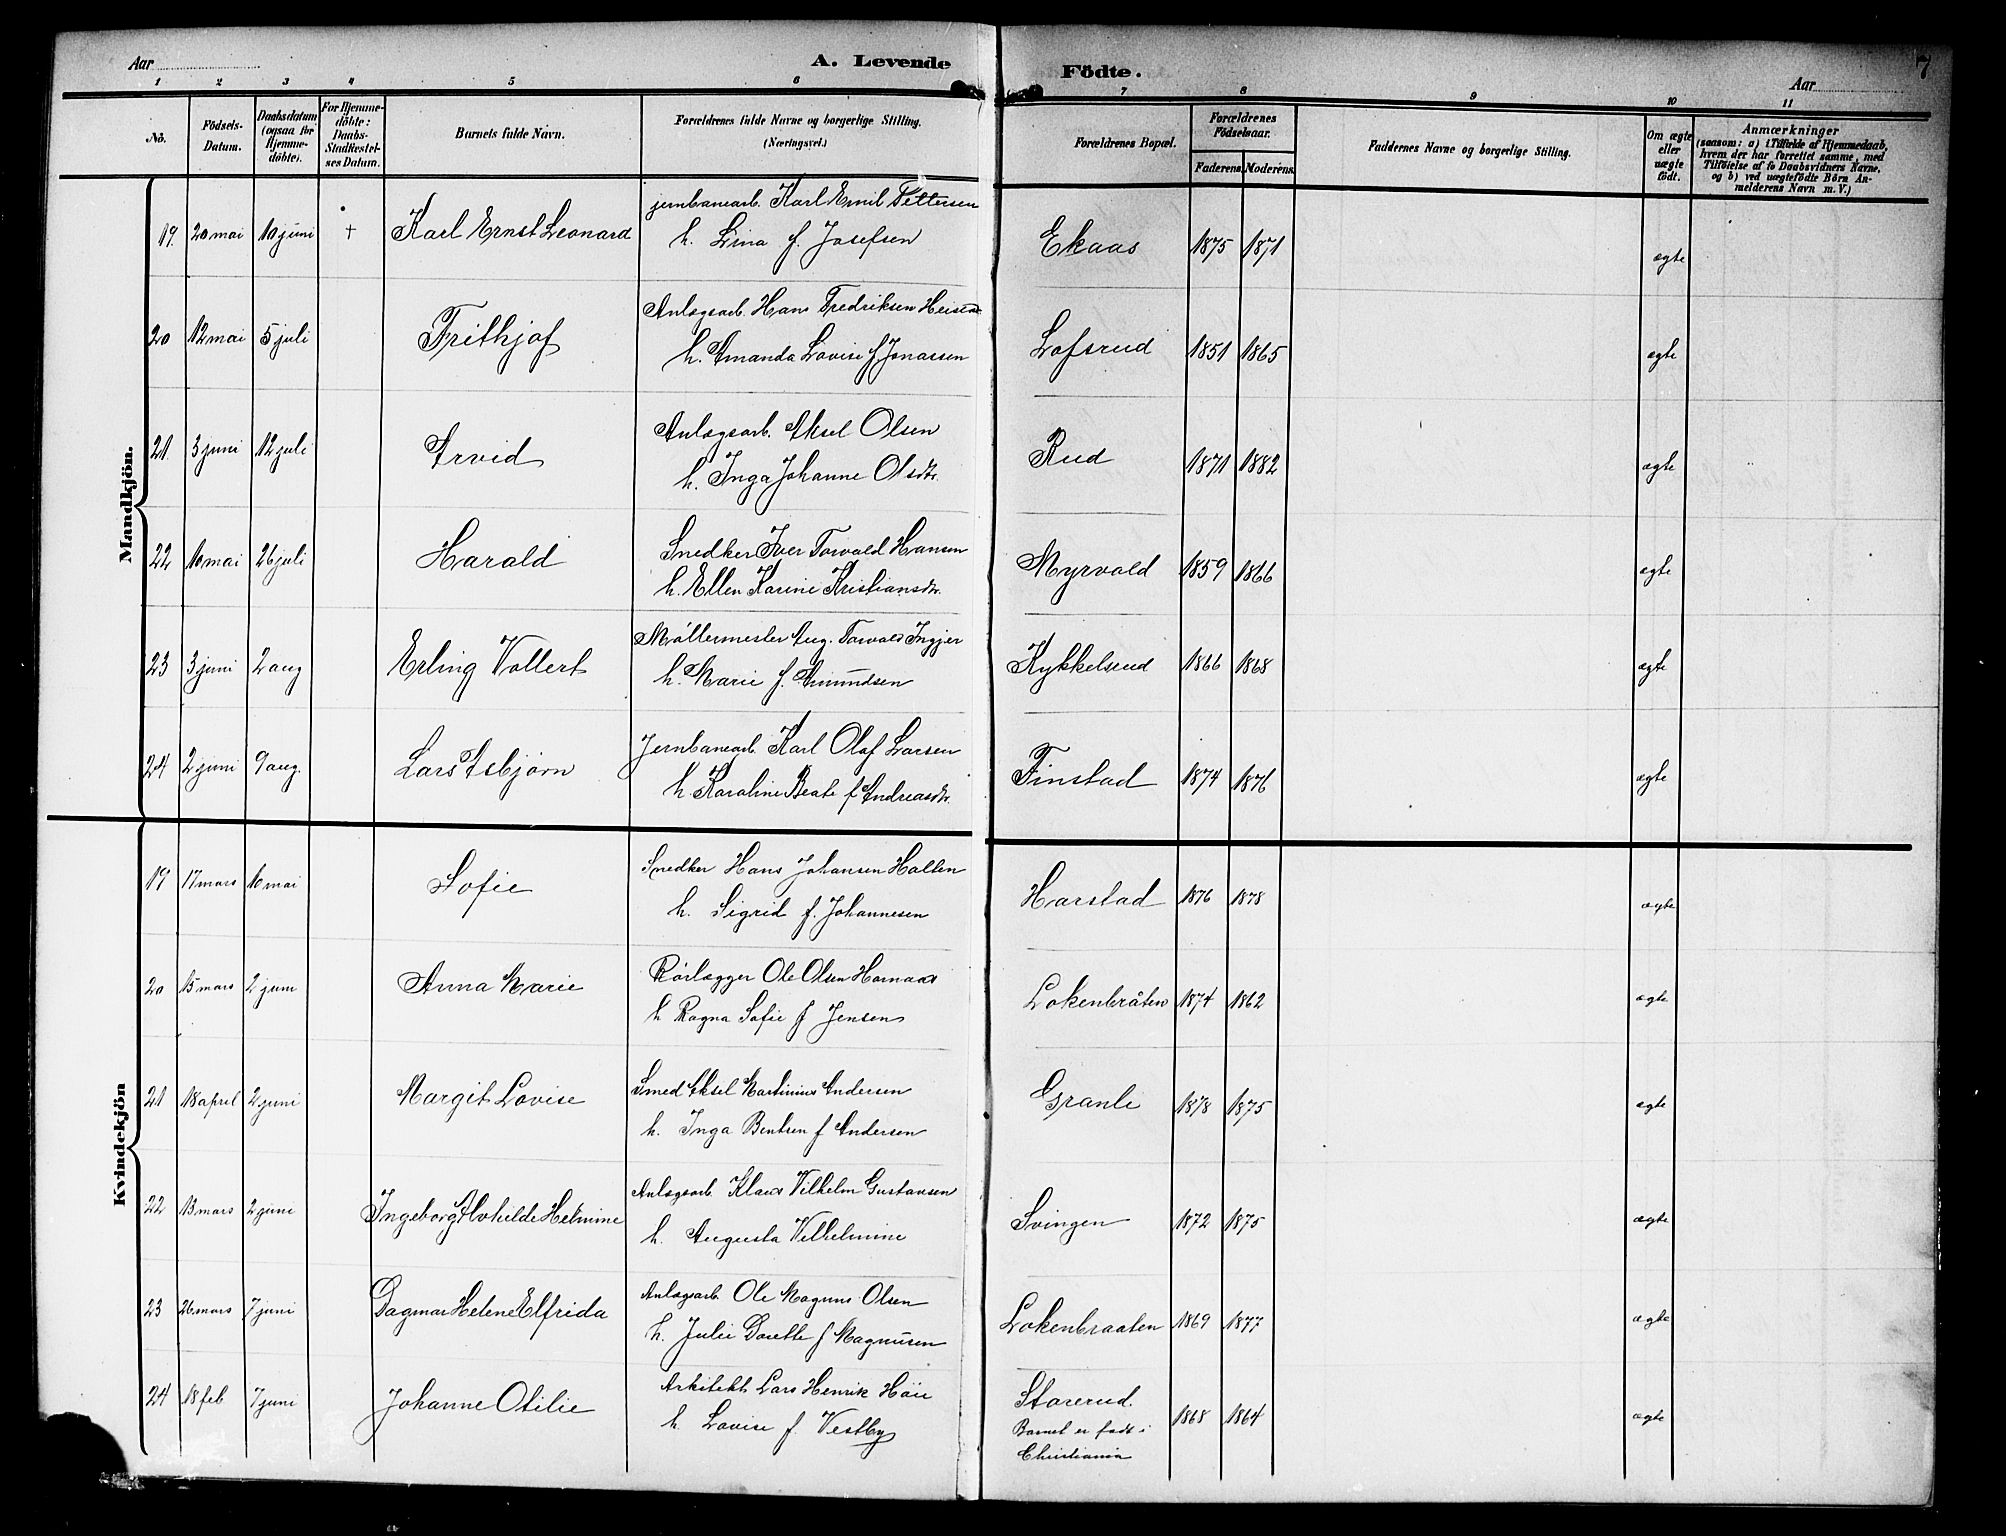 Aar
A. Levende
Födte.
Aar
7
1 2 3 4 5 6 7 8 9 10 11
No.
Födsels-Datum.
Daabsdatum (ogsaa for Hjemmedöbte).
For Hjemmedöbte: Daabs-Stadfestelses Datum.
Barnets fulde Navn.
Forældrenes fulde Navne og borgerlige Stilling. (Næringsvei.)
Forældrenes Bopæl.
Forældrenes Födselsaar.
Faderens. Moderens.
Faddernes Navne og borgerlige Stilling.
Om ægte eller uægte födt.
Anmærkninger
(saasom: a) i Tilfælde af Hjemmedaab, hvem der har forrettet samme, med Tilföielse af to Daabsvidners Navne, og b) ved uægtefödte Börn Anmelderens Navn m. V.)
Mandkjön.
19. 20 mai 10 juni + Karl Ernst Leonard jernbanearb. Karl Emil Pettersen Ekaas 1875 1871 ægte
h. Lina f. Josefsen
20 12 mai 5 juli Frithjof Anlægsarb. Hans Fredriksen Lofsrud 1851 1865 ægte
h. Amanda Lovise f. Jonassen
21. 3 juni 12 juli Arvid Anlægsarb. Aksel Olsen Rud 1871 1882 ægte
h. Inga Johanne Olsdtr.
22 10 mai 26 juli Harald Snedker Iver Torvald Hansen Myrvold 1859 1866 ægte
h. Ellen Karine Kristiansdtr.
23 3 juni 2 aug Erling Vollert Møllermester Aug. Torvald Ingjer Kykkelsrud 1866 1868 ægte
h. Marie f. Amundsen
24 2 juni 9 aug. Lars Asbjørn Jernbanearb. Karl Olaf Larsen Finstad 1874 1876 ægte
h. Karoline Beate f Andreasdtr.
Kvindekjön
19 17 mars 10 mai Sofie Snedker Hans Johansen Holten Harstad 1876 1878 ægte
h. Sigrid f. Johannesen
20 15 mars 2 juni Anna Marie Rørlægger Ole Olsen Hornaas Lokenbråten 1874 1862 ægte
h Ragna Sofie f Jensen
21 18 april 2 juni Margit Lovise Smed Aksel Martinius Andersen Granli 1878 1875 ægte
h. Inga Bentsen f Andersen
22 13 mars 2 juni Ingeborg Alvhilde Helmine Anlægsarb. Klaus Vilhelm Gustavsen Svingen 1872 1875 ægte
h. Augusta Vilhelmine
23 26 mars 7 juni Dagmar Helene Elfrida Anlægsarb. Ole Magnus Olsen Lokenbraaten 1869 1877 ægte
h. Julie Dorette f Magnusen
24 18 feb 7 juni Johanne Otilie Arkitekt Lars Henrik Høie Storerud. 1868 1864 ægte
h. Lovise f. Vestby
Barnet er født i
Christiania